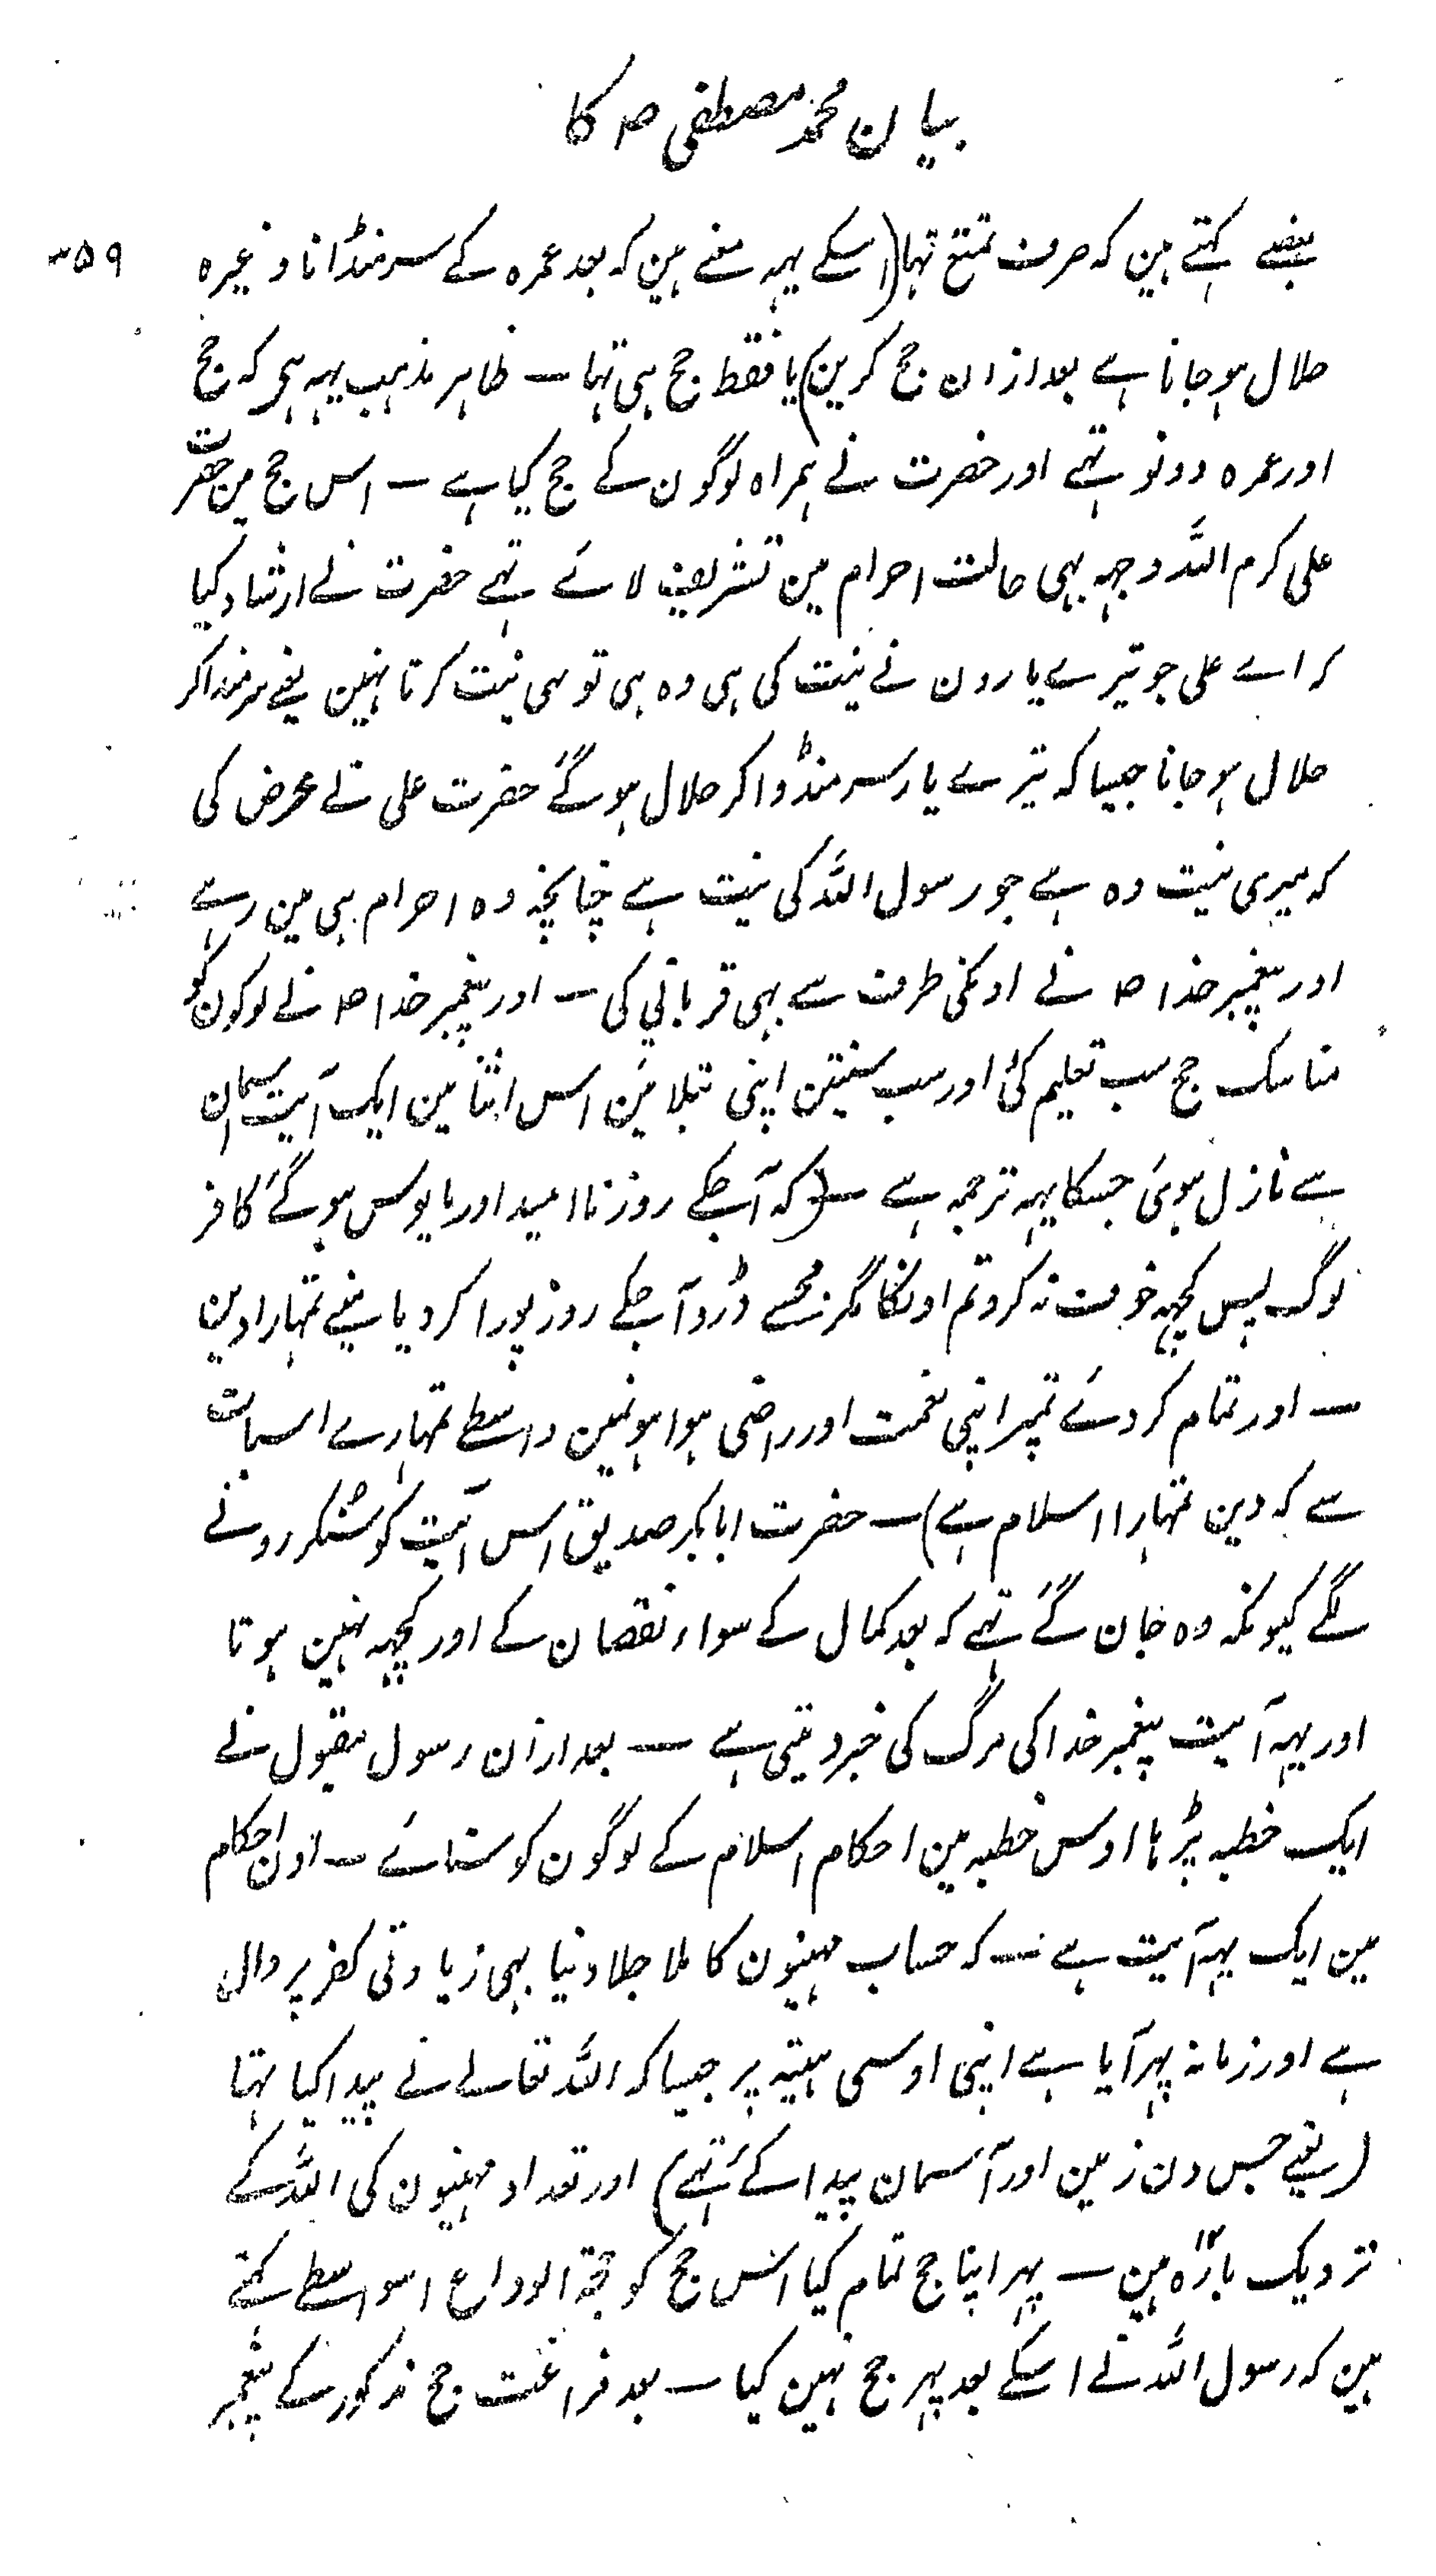 بیان محمد مصطفی ص کا
۳۵۹
بعضے کہتے ہین کہ صرف تمتع تہا (اسکے یہہ معنے ہین کہ بعد عمرہ کے سر منڈانا وغیرہ
حلال ہو جاتا ہے بعد ازان حج کرین) یا فقط حج ہی تہا — ظاہر مذہب یہہ ہی کہ حج
اور عمرہ دونو تہے اور حضرت نے ہمراہ لوگون کے حج کیا ہے — اس حج مین حضرت
علی کرم اللہ وجہہ بہی حالت احرام مین تشریف لائے تہے حضرت نے ارشاد کیا
کہ اے علی جو تیرے یارون نے نیت کی ہی وہ ہی تو بہی نیت کر تا نہین یعنے سر منڈاکر
حلال ہو جانا جیسا کہ تیرے یار سر منڈواکر حلال ہو گئے حضرت علی نے عرض کی
کہ میری نیت وہ ہے جو رسول اللہ کی نیت ہے چنانچہ وہ احرام ہی مین رہے
اور پیغمبر خدا ص نے اونکی طرف سے بہی قربانی کی — اور پیغمبر خدا ص نے لوگون کو
مناسک حج سب تعلیم کئی اور سب سنتین اپنی بتلائین اس اثنا مین ایک آیت آسمان
سے نازل ہوئی جسکا یہہ ترجمہ ہے — (کہ آجکے روز ناامید اور مایوس ہو گئے کافر
لوگ پس کچہہ خوف نہ کرو تم اونکا مگر مجہسے ڈرو آجکے روز پورا کر دیا مینے تمہارا دین
— اور تمام کر دئے تمپر اپنی نعمت اور راضی ہوا ہونمین واسطے تمہارے اسبات
سے کہ دین تمہارا اسلام ہے) — حضرت ابابکر صدیق اس آیت کو سنکر رونے
لگے کیونکہ وہ جان گئے تہے کہ بعد کمال کے سواء نقصان کے اور کچہہ نہین ہوتا
اور یہہ آیت پیغمبر خدا کی مرگ کی خبر دیتی ہے — بعد ازان رسول مقبول نے
ایک خطبہ پڑہا اوس خطبہ مین احکام اسلام کے لوگون کو سنائے — اون احکام
مین ایک یہہ آیت ہے — کہ حساب مہینون کا ملا جلا دنیا بہی زیادتی کفر پر دال
ہے اور زمانہ پہر آیا ہے اپنی اوسی ہیئتہ پر جیسا کہ اللہ تعالے نے پیدا کیا تہا
(یعنے جس دن زمین اور آسمان پیدا کئے تہے) اور تعداد مہینون کی اللہ کے
نزدیک بارہ ۱۲ ہین — پہر اپنا حج تمام کیا اس حج کو حجۃ الوداع اسواسطے کہتے
ہین کہ رسول اللہ نے اسکے بعد پہر حج نہین کیا — بعد فراغت حج مذکور کے پیغمبر